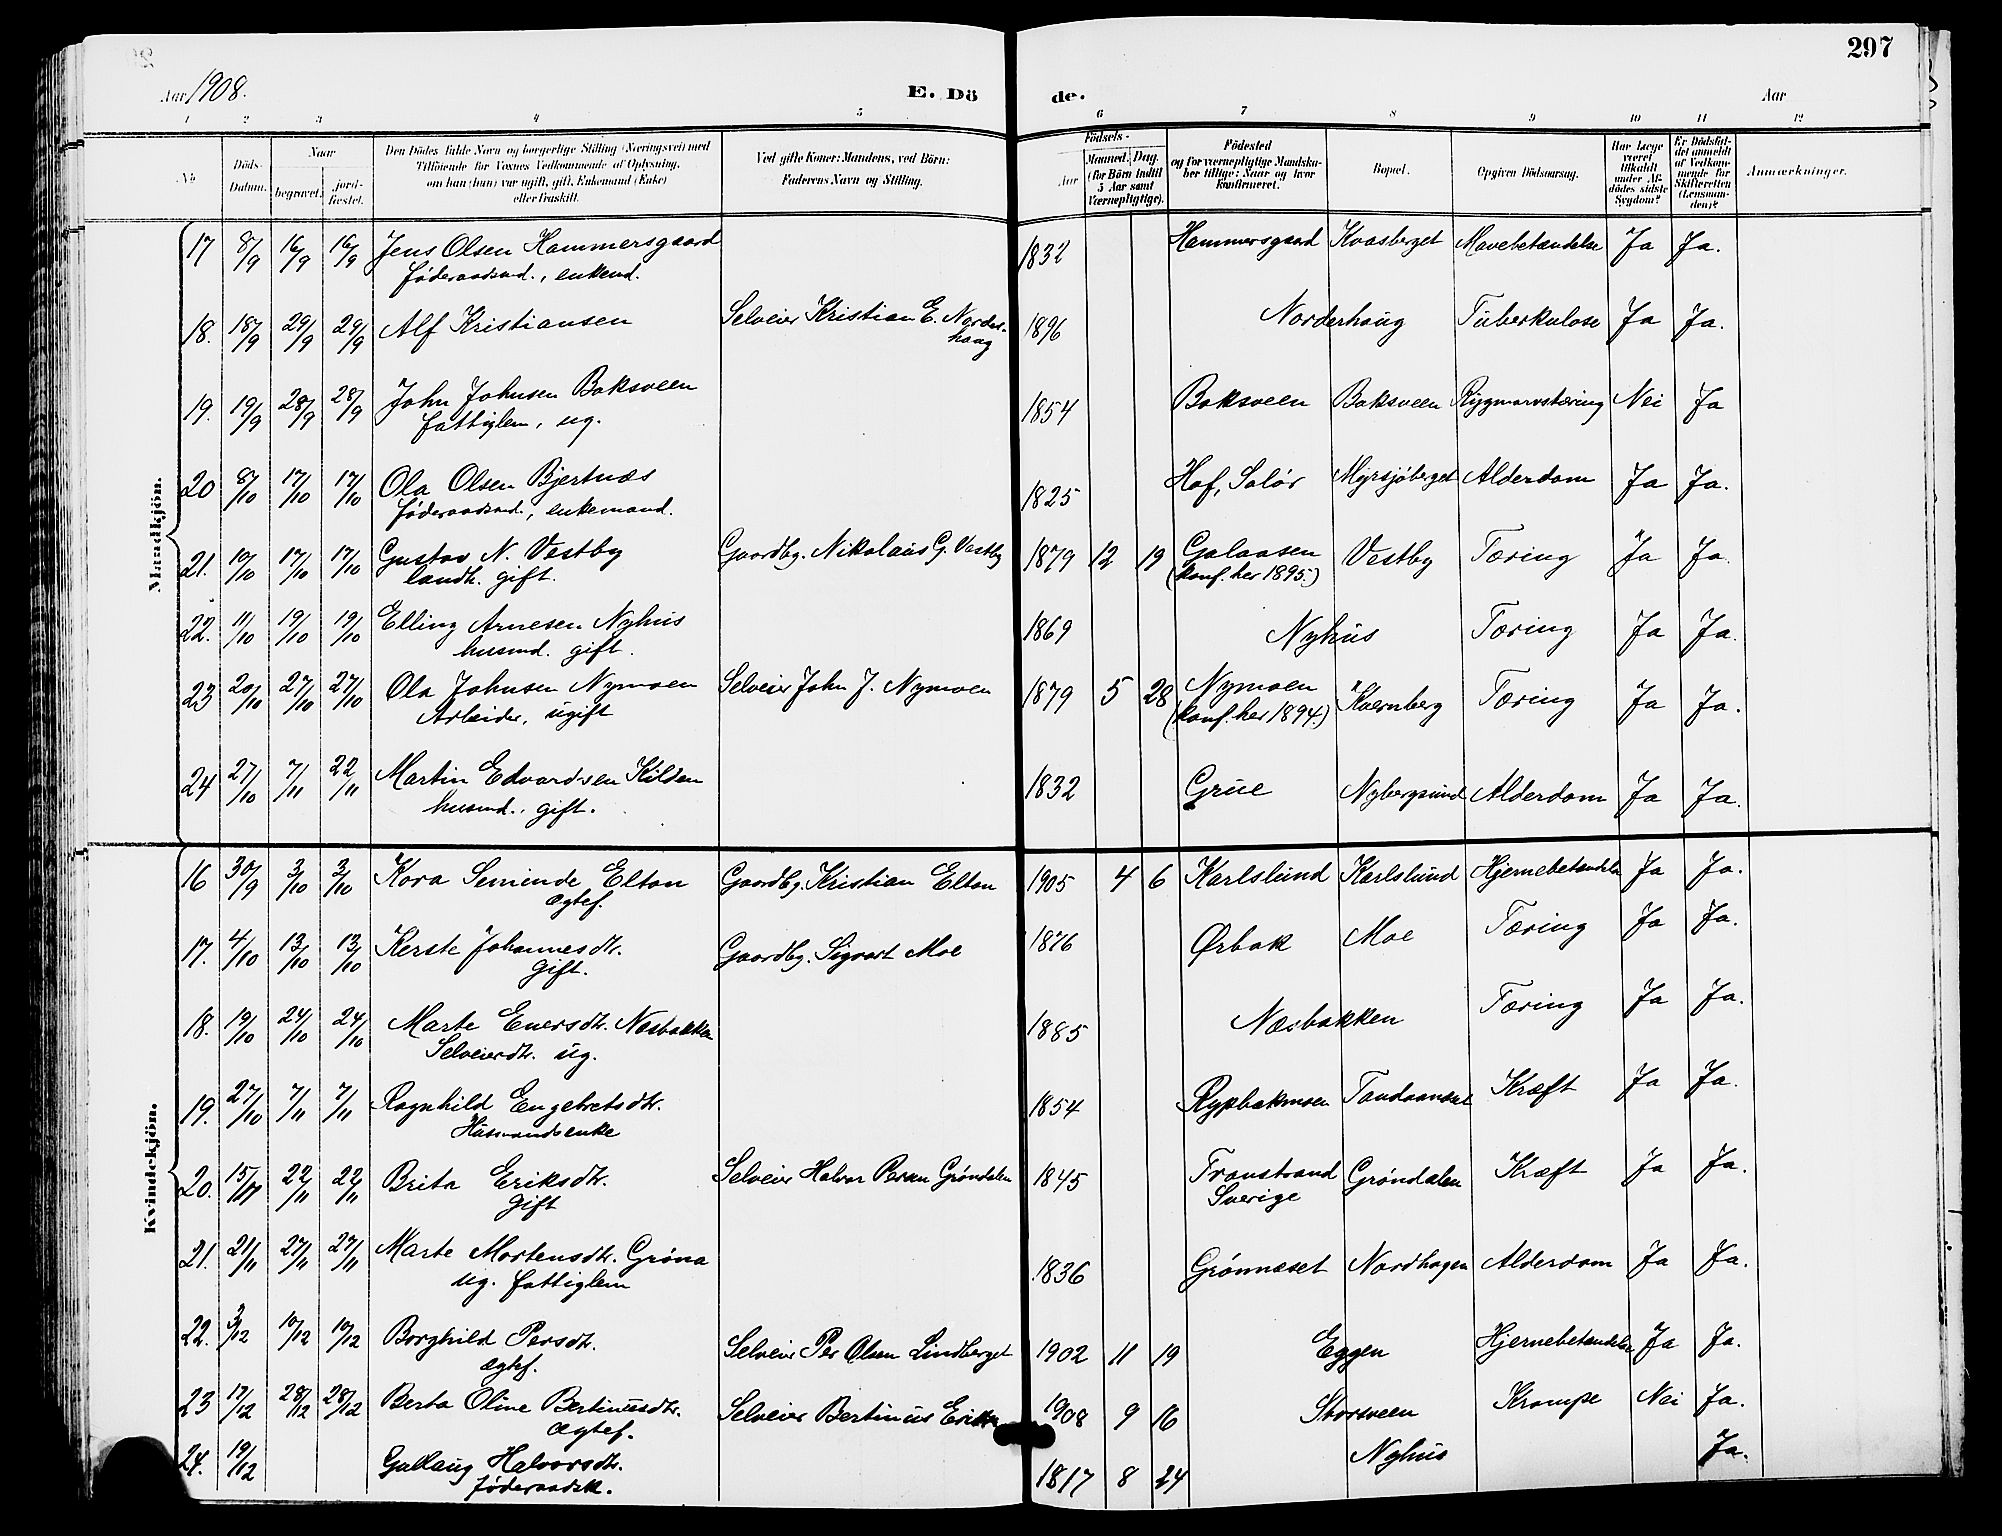 297
Aar 1908.
E. Dö de.
Aar
1 2 3 4 5 6 7 8 9 10 11 12
No
Döds-Datum.
Naar
begravet.
jord-fæstet.
Den Dödes fulde Navn og borgerlige Stilling (Næringsvei) med
Tilföiende for Voxnes Vedkommende af Oplysning,
om han (hun) var ugift, gift, Enkemand (Enke)
eller fraskilt.
Ved gifte Koner: Mandens, ved Börn:
Faderens Navn og Stilling.
Födsels-
Aar
Maaned. Dag.
(for Börn indtil
5 Aar samt
Værnepligtige).
Födested
og for værnepligtige Mandska-
ber tillige: Naar og hvor
konfirmeret.
Bopæl.
Opgiven Dödsaarsag.
Har Læge
været
tilkaldt
under Af-
dödes sidste
Sygdom?
Er Dödsfal-
det anmeldt
af Vedkom-
mende for
Skifteretten
(Lensman-
den)?
Anmærkninger.
Mandkjön.
17 8/9 16/9 16/9 Jens Olsen Hammersgaard 1832 Hammersgaard Kvasberget Mavebetændelse Ja Ja.
føderaadsmd., enkemd.
18. 18/9 29/9 29/9 Alf Kristiansen Selveier Kristian E. Norder- 1896 Norderhaug Tuberkulose Ja Ja.
haug
19. 19/9 28/9 28/9 John Johnsen Baksveen 1854 Baksveen Baksveen Rygmarvstæring Nei Ja
fattiglem, ug.
20 8/10 17/10 17/10 Ola Olsen Bjertnæs 1825 Hof, Solør Myrsjøberget Alderdom Ja Ja.
føderaadsmd., enkemand.
21. 10/10 17/10 17/10 Gustav N. Vestby Gaardbg. Nikolaus G. Vestby 1879 12 19 Galaasen Vestby Tæring Ja Ja.
landh. gift. (konf. her 1895.)
22. 11/10 19/10 19/10 Elling Arnesen Nyhus 1869 Nyhus Tæring Ja Ja.
husmd. gift.
23 20/10 27/10 27/10 Ola Johnsen Nymoen Selveier John J. Nymoen 1879 5 28 Nymoen Kvernberg Tæring Ja Ja.
Arbeider, ugift (konf. her 1894.)
24 27/10 7/11 22/11 Martin Edvardsen Kilden 1832 Grue Nybergsund Alderdom Ja Ja.
husmd., gift.
Kvindekjön.
16 30/9 3/10 3/10 Kora Semende Elton Gaardbg. Kristian Elton 1905 4 6 Karlslund Karlslund Hjernebetændelse Ja Ja.
ægtef.
17. 4/10 13/10 13/10 Kerste Johannesdtr. Gaardbg. Sigvart Moe 1876 Ørbak Moe Tæring Ja Ja.
gift.
18. 19/10 24/10 24/10 Marte Enersdtr. Næsbakken 1885 Næsbakken Tæring Ja Ja.
Selveierdtr. ug.
19. 27/10 7/11 7/11 Ragnhild Engebretsdtr. 1854 Rypbakmoen Tandaanset Kræft Ja Ja.
Husmandsenke
20. 15/11 22/11 22/11 Brita Eriksdtr. Selveier Halvor Persen Grøndalen 1845 Transtrand Grøndalen Kræft Ja Ja.
gift Sverige
21. 21/11 27/11 27/11 Marte Mortensdtr. Grøna 1836 Grønnæset Nordhagen Alderdom Ja Ja.
ug. fattiglem
22. 3/12 10/12 10/12 Borghild Persdtr. Selveier Per Olsen Lindberget 1902 11 19 Eggen Hjernebetændelse Ja Ja.
ægtef.
23 17/12 28/12 28/12 Berta Oline Bertinusdtr. Selveier Bertinus Eriksen 1908 9 16 Storsveen Krampe Nei Ja.
ægtef.
24. 19/12 Gullaug Halvorsdtr. 1817 8 24 Nyhus Ja.
føderaadsk.